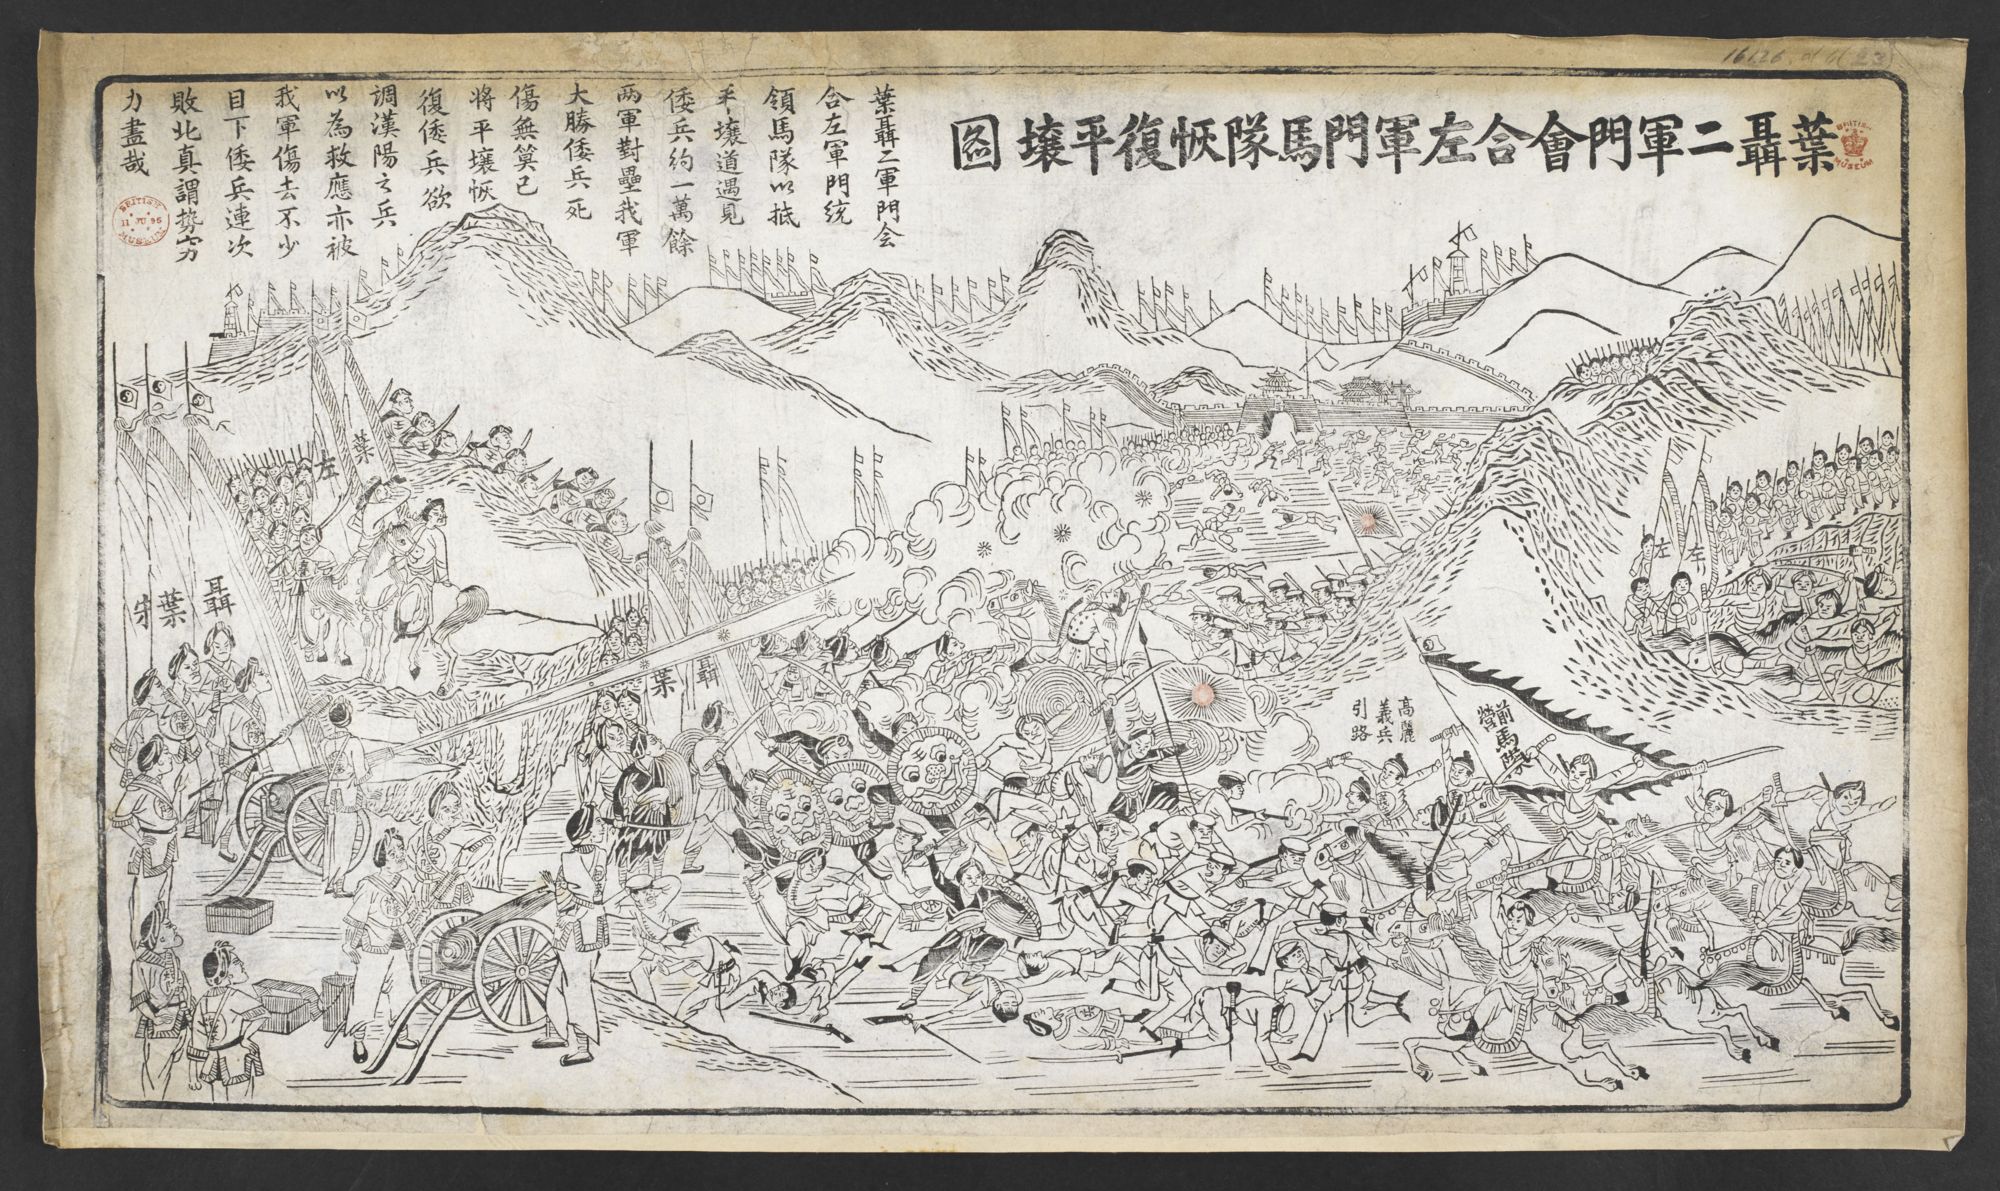 葉聶二軍門會合左軍門馬隊恢復平壤圖
葉聶二軍門会
合左軍門统
領馬隊以抵
平壤道遇見
倭兵約一萬餘
两軍對壘我軍
大勝倭兵死
傷無算已
將平壤恢
復倭兵欲
調漢陽之兵
以為救應亦被
我軍傷去不少
目下倭兵連次
敗北真謂势穷
力盡哉
BRITISH MUSEUM
BRITISH
11 JU 95
MUSEUM
左
葉
聶
葉
宋
聶
葉
左
左
高麗
義兵
引路
前馬隊
營